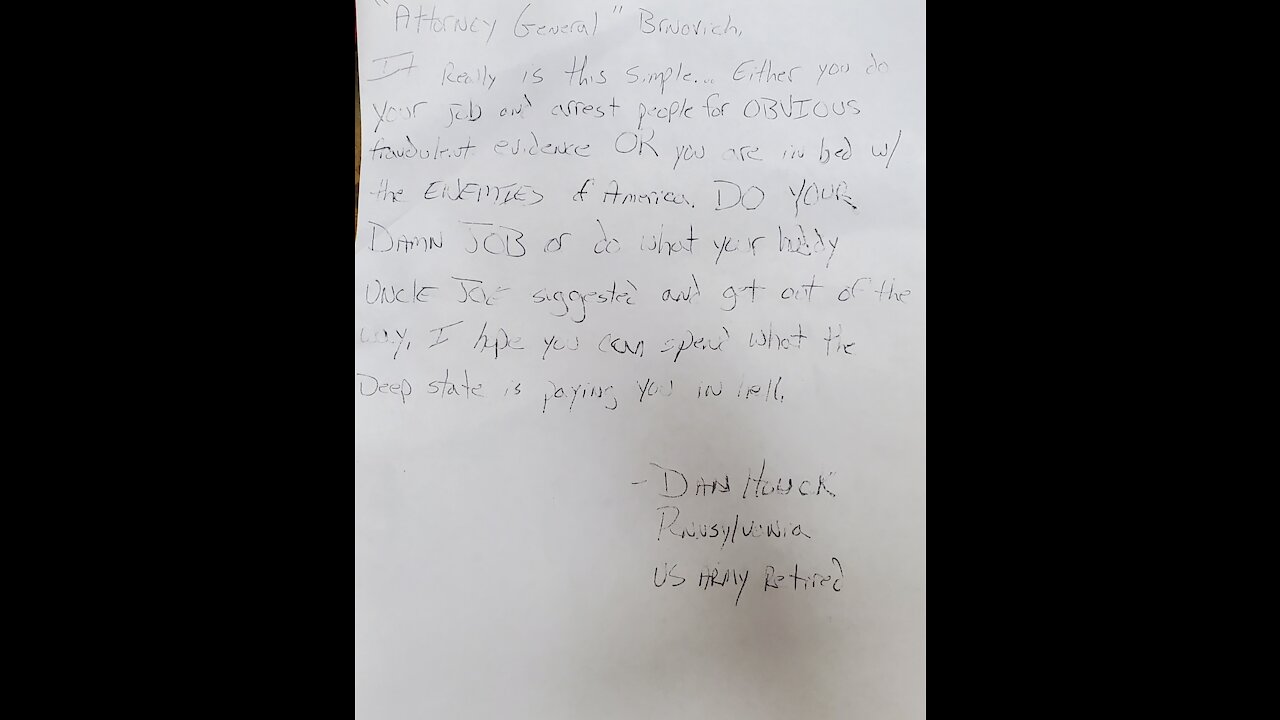 "Attorney General" Brnovich,
It Really is this simple... Either you do
your job and arrest people for OBVIOUS
fraudulent evidence OR you are in bed w/
the ENEMIES of America. DO YOUR
DAMN JOB or do what your buddy
UNCLE JOE suggested and get out of the
way. I hope you can spend what the
Deep state is paying you in hell.
- DAN HOUCK
Pennsylvania
US ARMY Retired